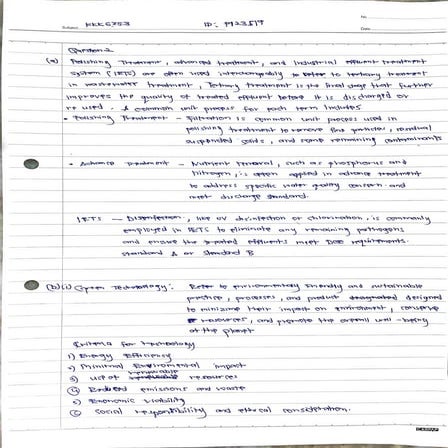 No.
KKE6353 ID: 1923517
Date
Question 2
(a) Polishing Treatment, advanced treatment, and industrial effluent treatment
system (IETS) are often used interchangeably to refer to tertiary treatment
in wastewater treatment, Tertiary treatment is the final stage that further
improves the quality of treated effluent before it is discharged or
re used. A common unit process for each term includes
• Polishing Treatment - Filtration is common unit process used in
polishing treatment to remove fine particles, residual
suspended solids, and some remaining contaminants
• Advance Treatment - Nutrient removal, such as phosphorus and
nitrogen, is often applied in advance treatment
to address specific water quality concern and
meet discharge standard.
IETS - Disinfection, like UV disinfection or chlorination, is commonly
employed in IETS to eliminate any remaining pathogens
and ensure the treated effluents meet DOE requirements.
standard A or standard B
(b)(i) Green Technology: Refer to environmentally friendly and sustainable
practice, processes, and product designed
to minimize their impact on environment, conserve
resources, and promote the overall well-being
of the planet
Criteria for technology
1) Energy Efficiency
2) Minimal Enviromental impact
3) Use of renewable resources
4) Reduced emissions and waste
5) Economic viability
6) Social responsibility and ethical consideration.